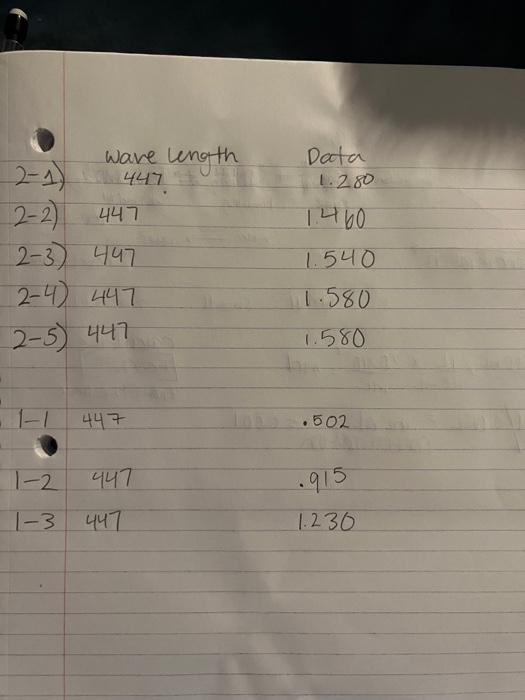 wave length Data
2-1) 447 1.280
2-2) 447 1.460
2-3) 447 1.540
2-4) 447 1.580
2-5) 447 1.580
1-1 447 .502
1-2 447 .915
1-3 447 1.230